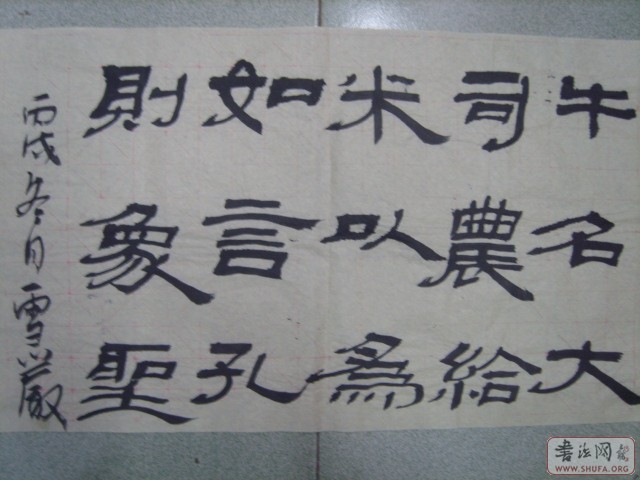 牛名大
司農給
米以為
如言孔
則象聖
丙戌冬月雪巖
書法网
WWW.SHUFA.ORG